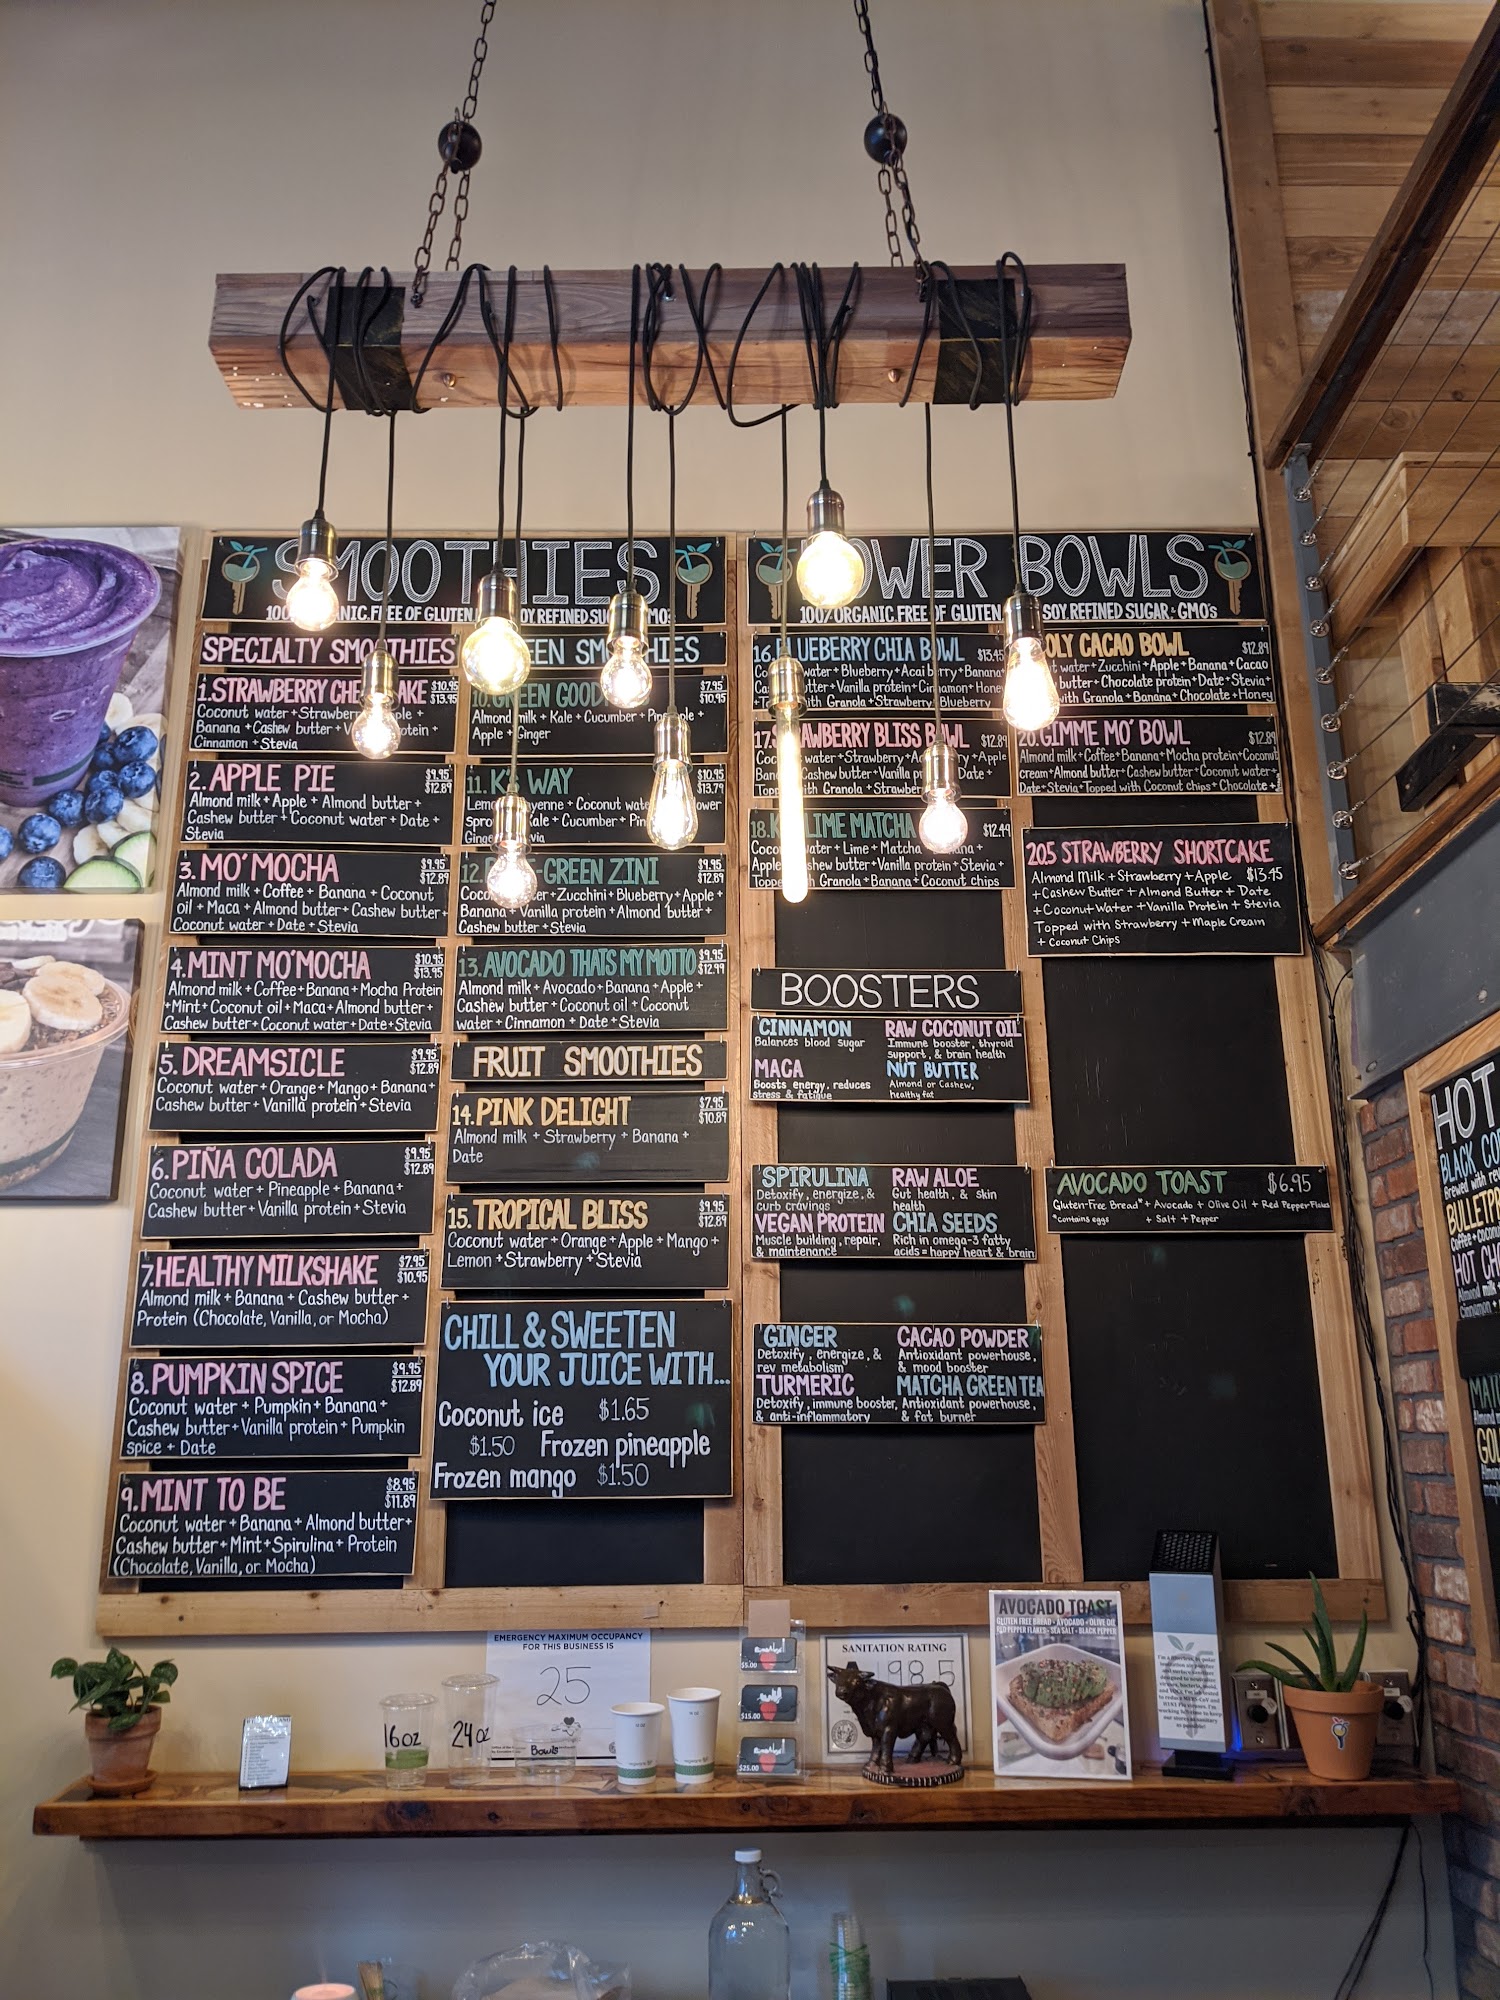 SMOOTHIES
100% ORGANIC. FREE OF GLUTEN SOY REFINED SUGAR
SPECIALTY SMOOTHIES
1. STRAWBERRY $10.95
$13.95
Coconut water + Strawberry
Banana + Cashew butter +
Cinnamon + Stevia
2. APPLE PIE $9.95
$12.89
Almond milk + Apple + Almond butter +
Cashew butter + Coconut water + Date +
Stevia
3. MO' MOCHA $9.95
$12.89
Almond milk + Coffee + Banana + Coconut
oil + Maca + Almond butter + Cashew butter +
Coconut water + Date + Stevia
4. MINT MO' MOCHA $10.95
$13.95
Almond milk + Coffee + Banana + Mocha Protein
+ Mint + Coconut oil + Maca + Almond butter +
Cashew butter + Coconut water + Date + Stevia
5. DREAMSICLE $9.95
$12.89
Coconut water + Orange + Mango + Banana +
Cashew butter + Vanilla protein + Stevia
6. PIÑA COLADA $9.95
$12.89
Coconut water + Pineapple + Banana +
Cashew butter + Vanilla protein + Stevia
7. HEALTHY MILKSHAKE $7.95
$10.95
Almond milk + Banana + Cashew butter +
Protein (Chocolate, Vanilla, or Mocha)
8. PUMPKIN SPICE $9.95
$12.89
Coconut water + Pumpkin + Banana +
Cashew butter + Vanilla protein + Pumpkin
spice + Date
9. MINT TO BE $8.95
$11.89
Coconut water + Banana + Almond butter +
Cashew butter + Mint + Spirulina + Protein
(Chocolate, Vanilla, or Mocha)
SMOOTHIES
10. GREEN $7.95
$10.95
Almond milk + Kale + Cucumber + Pineapple +
Apple + Ginger
11. K'S WAY $10.95
$13.79
Coconut
Kale + Cucumber +
12. GREEN ZINI $9.95
$12.89
+ Zucchini + Blueberry + Apple +
Banana + Vanilla protein + Almond butter +
Cashew butter + Stevia
13. AVOCADO THATS MY MOTTO $9.95
$12.99
Almond milk + Avocado + Banana + Apple +
Cashew butter + Coconut oil + Coconut
water + Cinnamon + Date + Stevia
FRUIT SMOOTHIES
14. PINK DELIGHT $7.95
$10.89
Almond milk + Strawberry + Banana +
Date
15. TROPICAL BLISS $9.95
$12.89
Coconut water + Orange + Apple + Mango +
Lemon + Strawberry + Stevia
CHILL & SWEETEN
YOUR JUICE WITH...
Coconut ice $1.65
$1.50 Frozen pineapple
Frozen mango $1.50
POWER BOWLS
100% ORGANIC. FREE OF GLUTEN SOY REFINED SUGAR & GMO's
16. BLUEBERRY CHIA BOWL $13.45
water + Blueberry + Acai berry + Banana +
butter + Vanilla protein + Cinnamon + Honey
with Granola + Strawberry Blueberry
17. STRAWBERRY BLISS BOWL $12.89
water + Strawberry + Apple
Cashew butter + Vanilla Date +
with Granola +
18. LIME MATCHA $12.49
water + Lime + Matcha
Cashew butter + Vanilla protein + Stevia +
with Granola + Banana + Coconut chips
CACAO BOWL $12.89
water + Zucchini + Apple + Banana + Cacao
butter + Chocolate protein + Date + Stevia +
with Granola + Banana + Chocolate + Honey
20. GIMME MO' BOWL $12.89
Almond milk + Coffee + Banana + Mocha protein + Coconut
cream + Almond butter + Cashew butter + Coconut water +
Date + Stevia + Topped with Coconut chips + Chocolate +
20.5 STRAWBERRY SHORTCAKE
Almond Milk + Strawberry + Apple $13.45
+ Cashew Butter + Almond Butter + Date
+ Coconut Water + Vanilla Protein + Stevia
Topped with Strawberry + Maple Cream
+ Coconut Chips
BOOSTERS
CINNAMON
Balances blood sugar
RAW COCONUT OIL
Immune booster, thyroid
support, & brain health
MACA
Boosts energy, reduces
stress & fatigue
NUT BUTTER
Almond or Cashew,
healthy fat
SPIRULINA
Detoxify, energize, &
curb cravings
RAW ALOE
Gut health, & skin
health
VEGAN PROTEIN
Muscle building, repair,
& maintenance
CHIA SEEDS
Rich in omega-3 fatty
acids = happy heart & brain
GINGER
Detoxify, energize, &
rev metabolism
CACAO POWDER
Antioxidant powerhouse,
& mood booster
TURMERIC
Detoxify, immune booster,
& anti-inflammatory
MATCHA GREEN TEA
Antioxidant powerhouse,
& fat burner
AVOCADO TOAST $6.95
Gluten-Free Bread* + Avocado + Olive Oil + Red Pepper Flakes
*contains eggs + Salt + Pepper
HOT
BLACK
Brewed with
BULLETPR
Coffee +
HOT
Almond milk
Cinnamon +
EMERGENCY MAXIMUM OCCUPANCY
FOR THIS BUSINESS IS
25
16oz
24oz
Bowls
$5.00
$15.00
$25.00
SANITATION RATING
98.5
AVOCADO TOAST
GLUTEN FREE BREAD • AVOCADO • OLIVE OIL
RED PEPPER FLAKES • SEA SALT • BLACK PEPPER